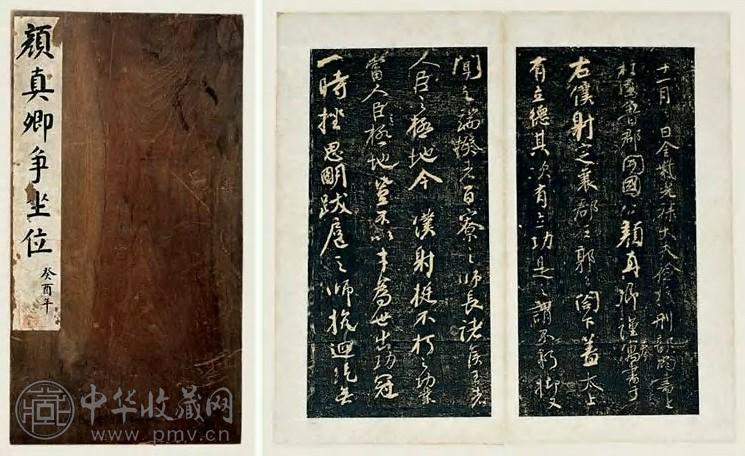 顏真卿争坐位
癸酉年
十一月 日金紫光祿大夫檢校刑部尚書上
柱國魯郡開國公顏真卿謹奉書于
右僕射定襄郡王郭公閤下蓋太上
有立德其次有立功是之謂不朽抑又
聞之端揆者百寮之師長諸侯王者
人臣之極地今僕射挺不朽之功業
當人臣之極地豈不以才為世出功冠
一時挫思明跋扈之師抗迴紇無
中华收藏网
www.pmv.cn